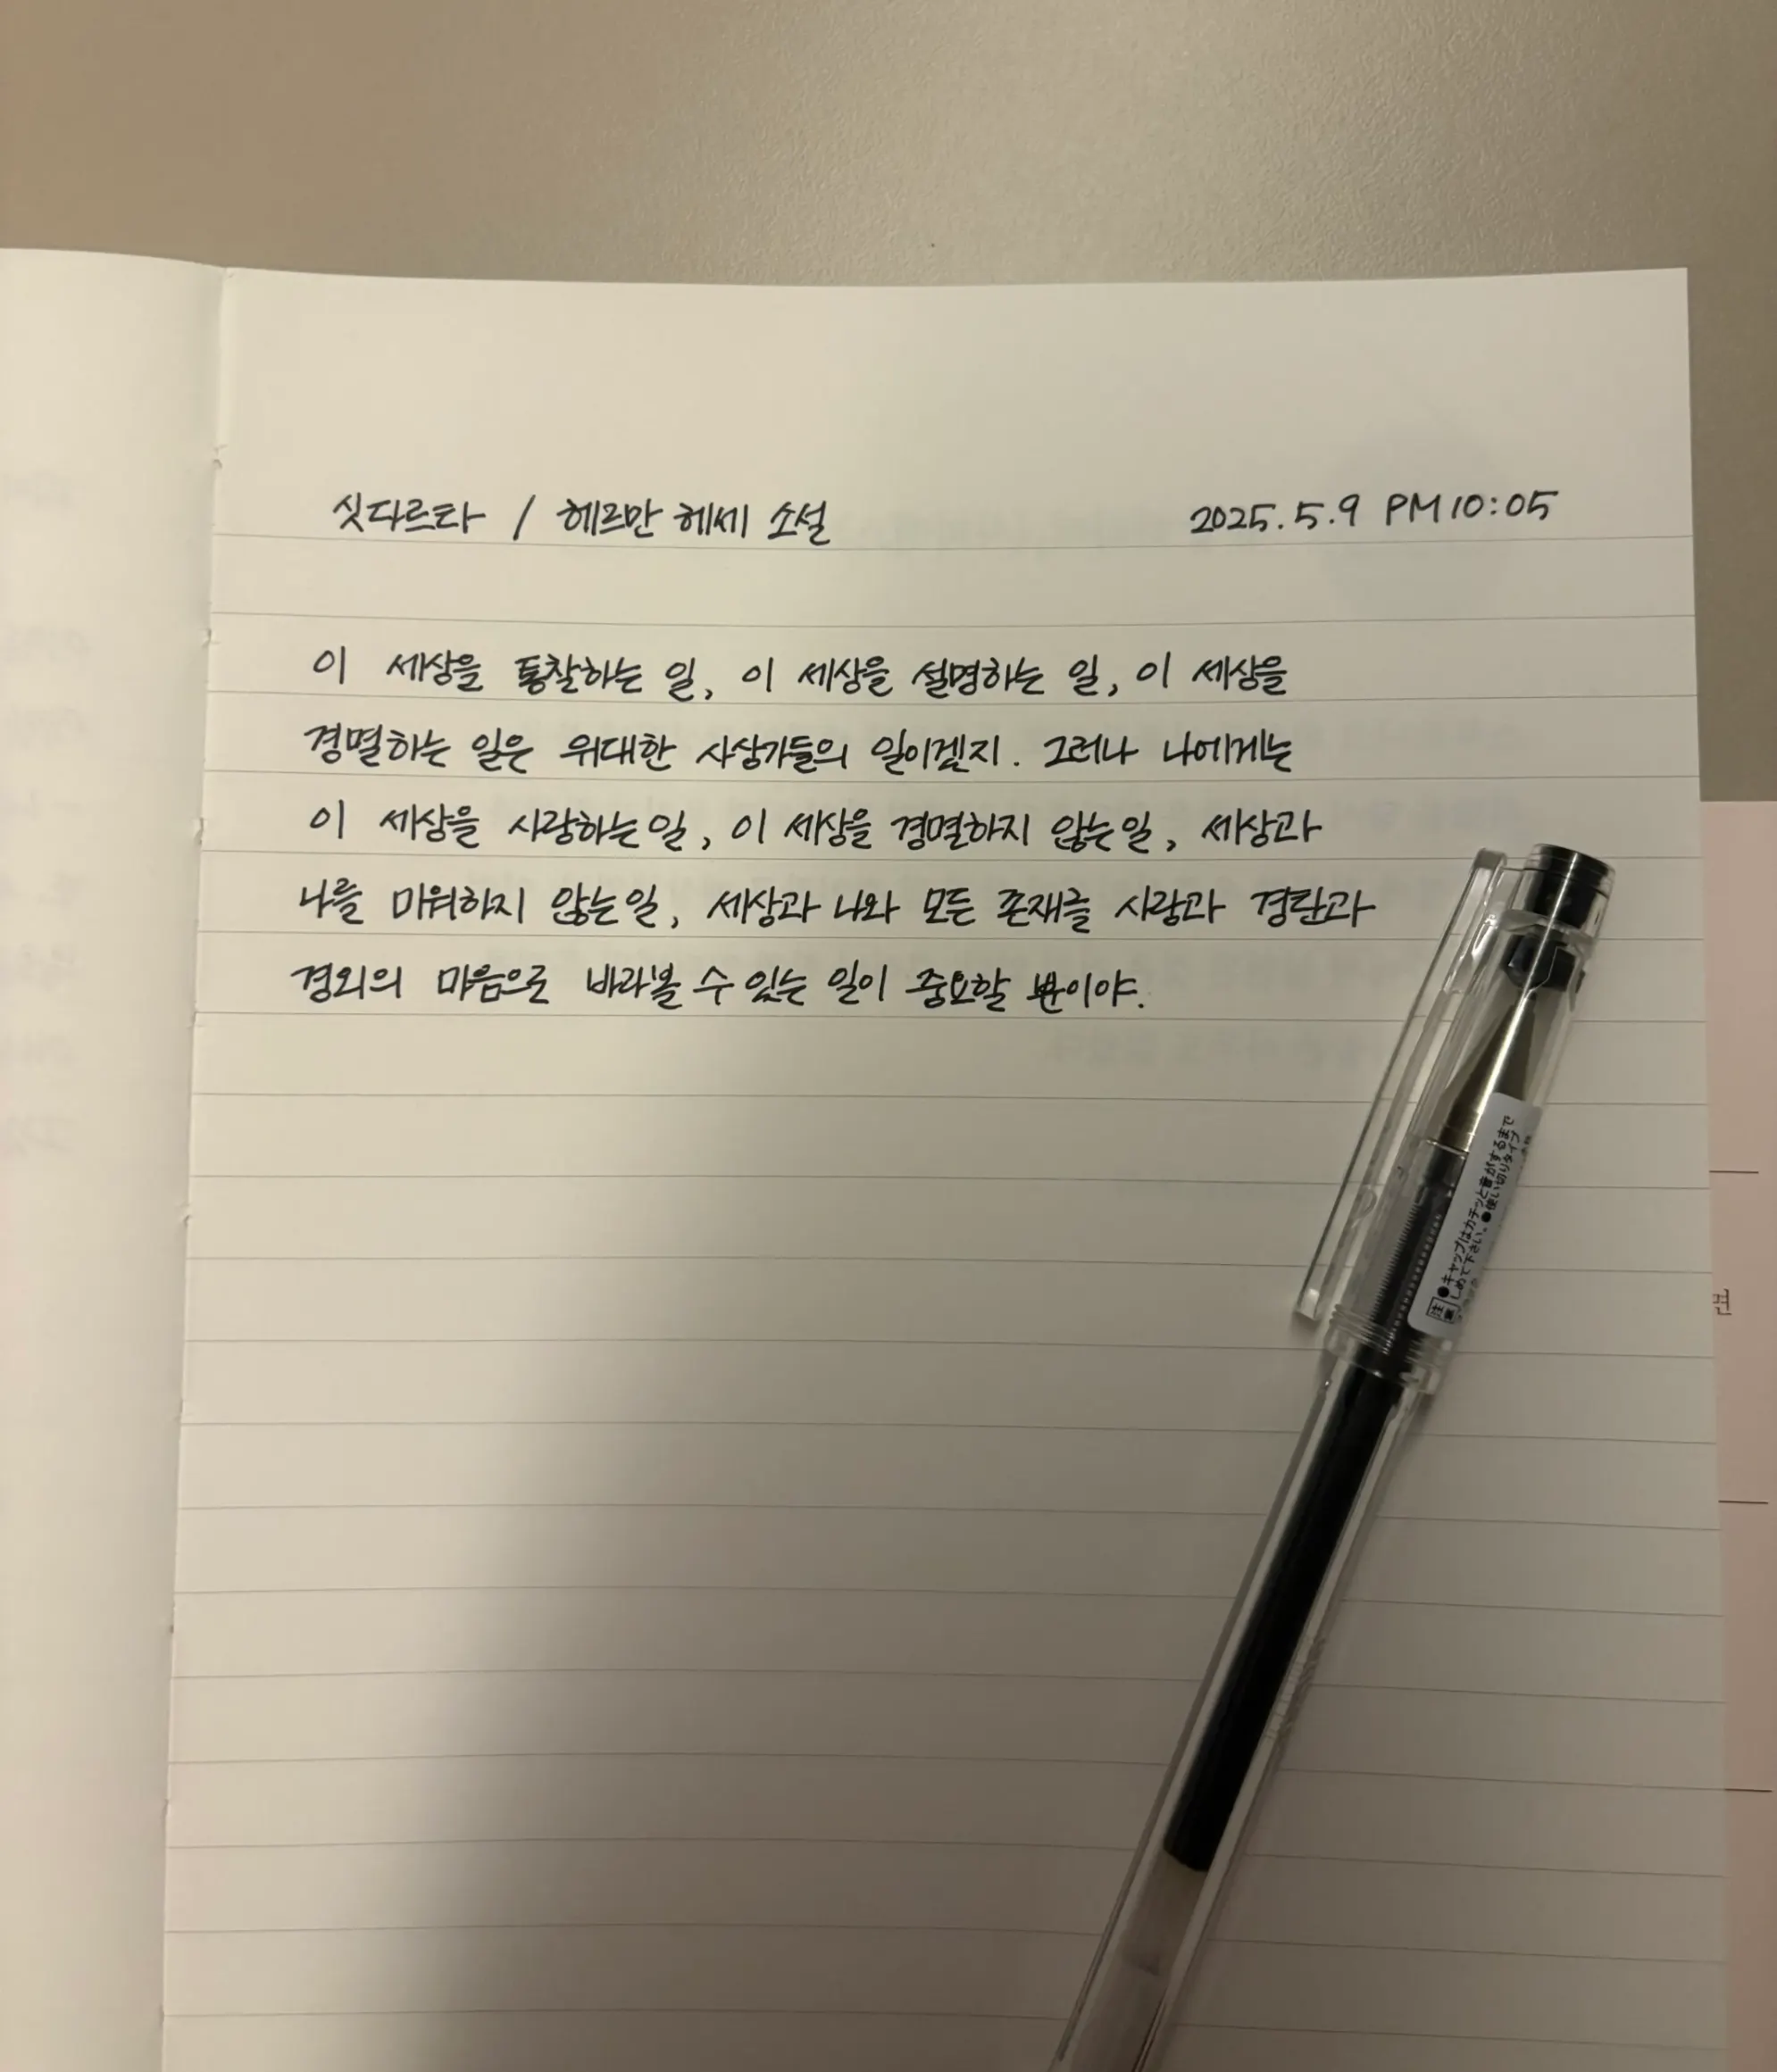 싯다르타 / 헤르만 헤세 소설 2025.5.9 PM10:05
이 세상을 통찰하는 일, 이 세상을 설명하는 일, 이 세상을
경멸하는 일은 위대한 사상가들의 일이겠지. 그러나 나에게는
이 세상을 사랑하는 일, 이 세상을 경멸하지 않는 일, 세상과
나를 미워하지 않는 일, 세상과 나와 모든 존재를 사랑과 경탄과
경외의 마음으로 바라볼 수 있는 일이 중요할 뿐이야.
注意 ●キャップはカチッと音がするまで
しめて下さい。●使い切りタイプ
면